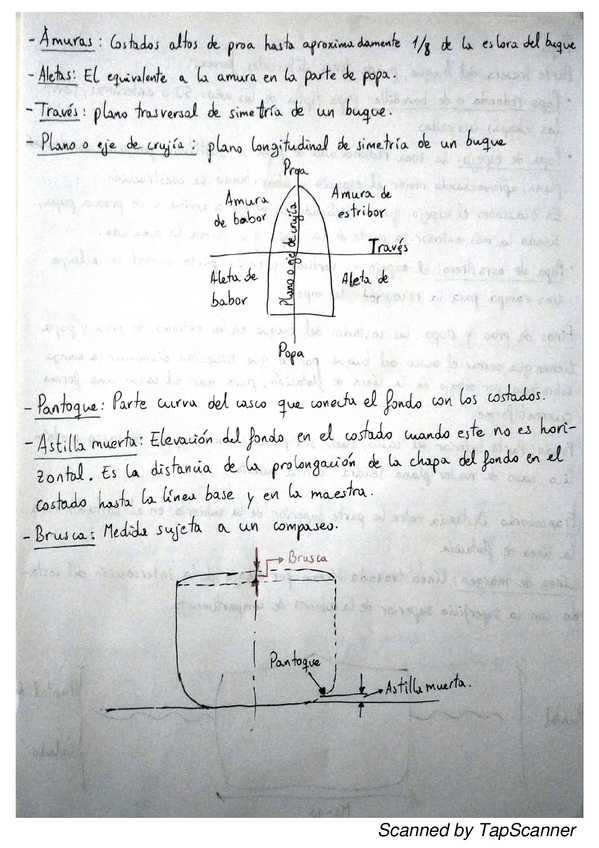 - Amuras: Costados altos de proa hasta aproximadamente 1/8 de la eslora del buque
- Aletas: El equivalente a la amura en la parte de popa.
- Través: plano trasversal de simetría de un buque.
- Plano o eje de crujía: plano longitudinal de simetría de un buque
Proa
Amura de babor
Amura de estribor
Plano o eje de crujía
Través
Aleta de babor
Aleta de
Popa
- Pantoque: Parte curva del casco que conecta el fondo con los costados.
- Astilla muerta: Elevación del fondo en el costado cuando este no es hori-
zontal. Es la distancia de la prolongación de la chapa del fondo en el
costado hasta la línea base y en la maestra.
- Brusca: Medida sujeta a un compaseo.
Brusca
Pantoque
Astilla muerta.
Scanned by TapScanner